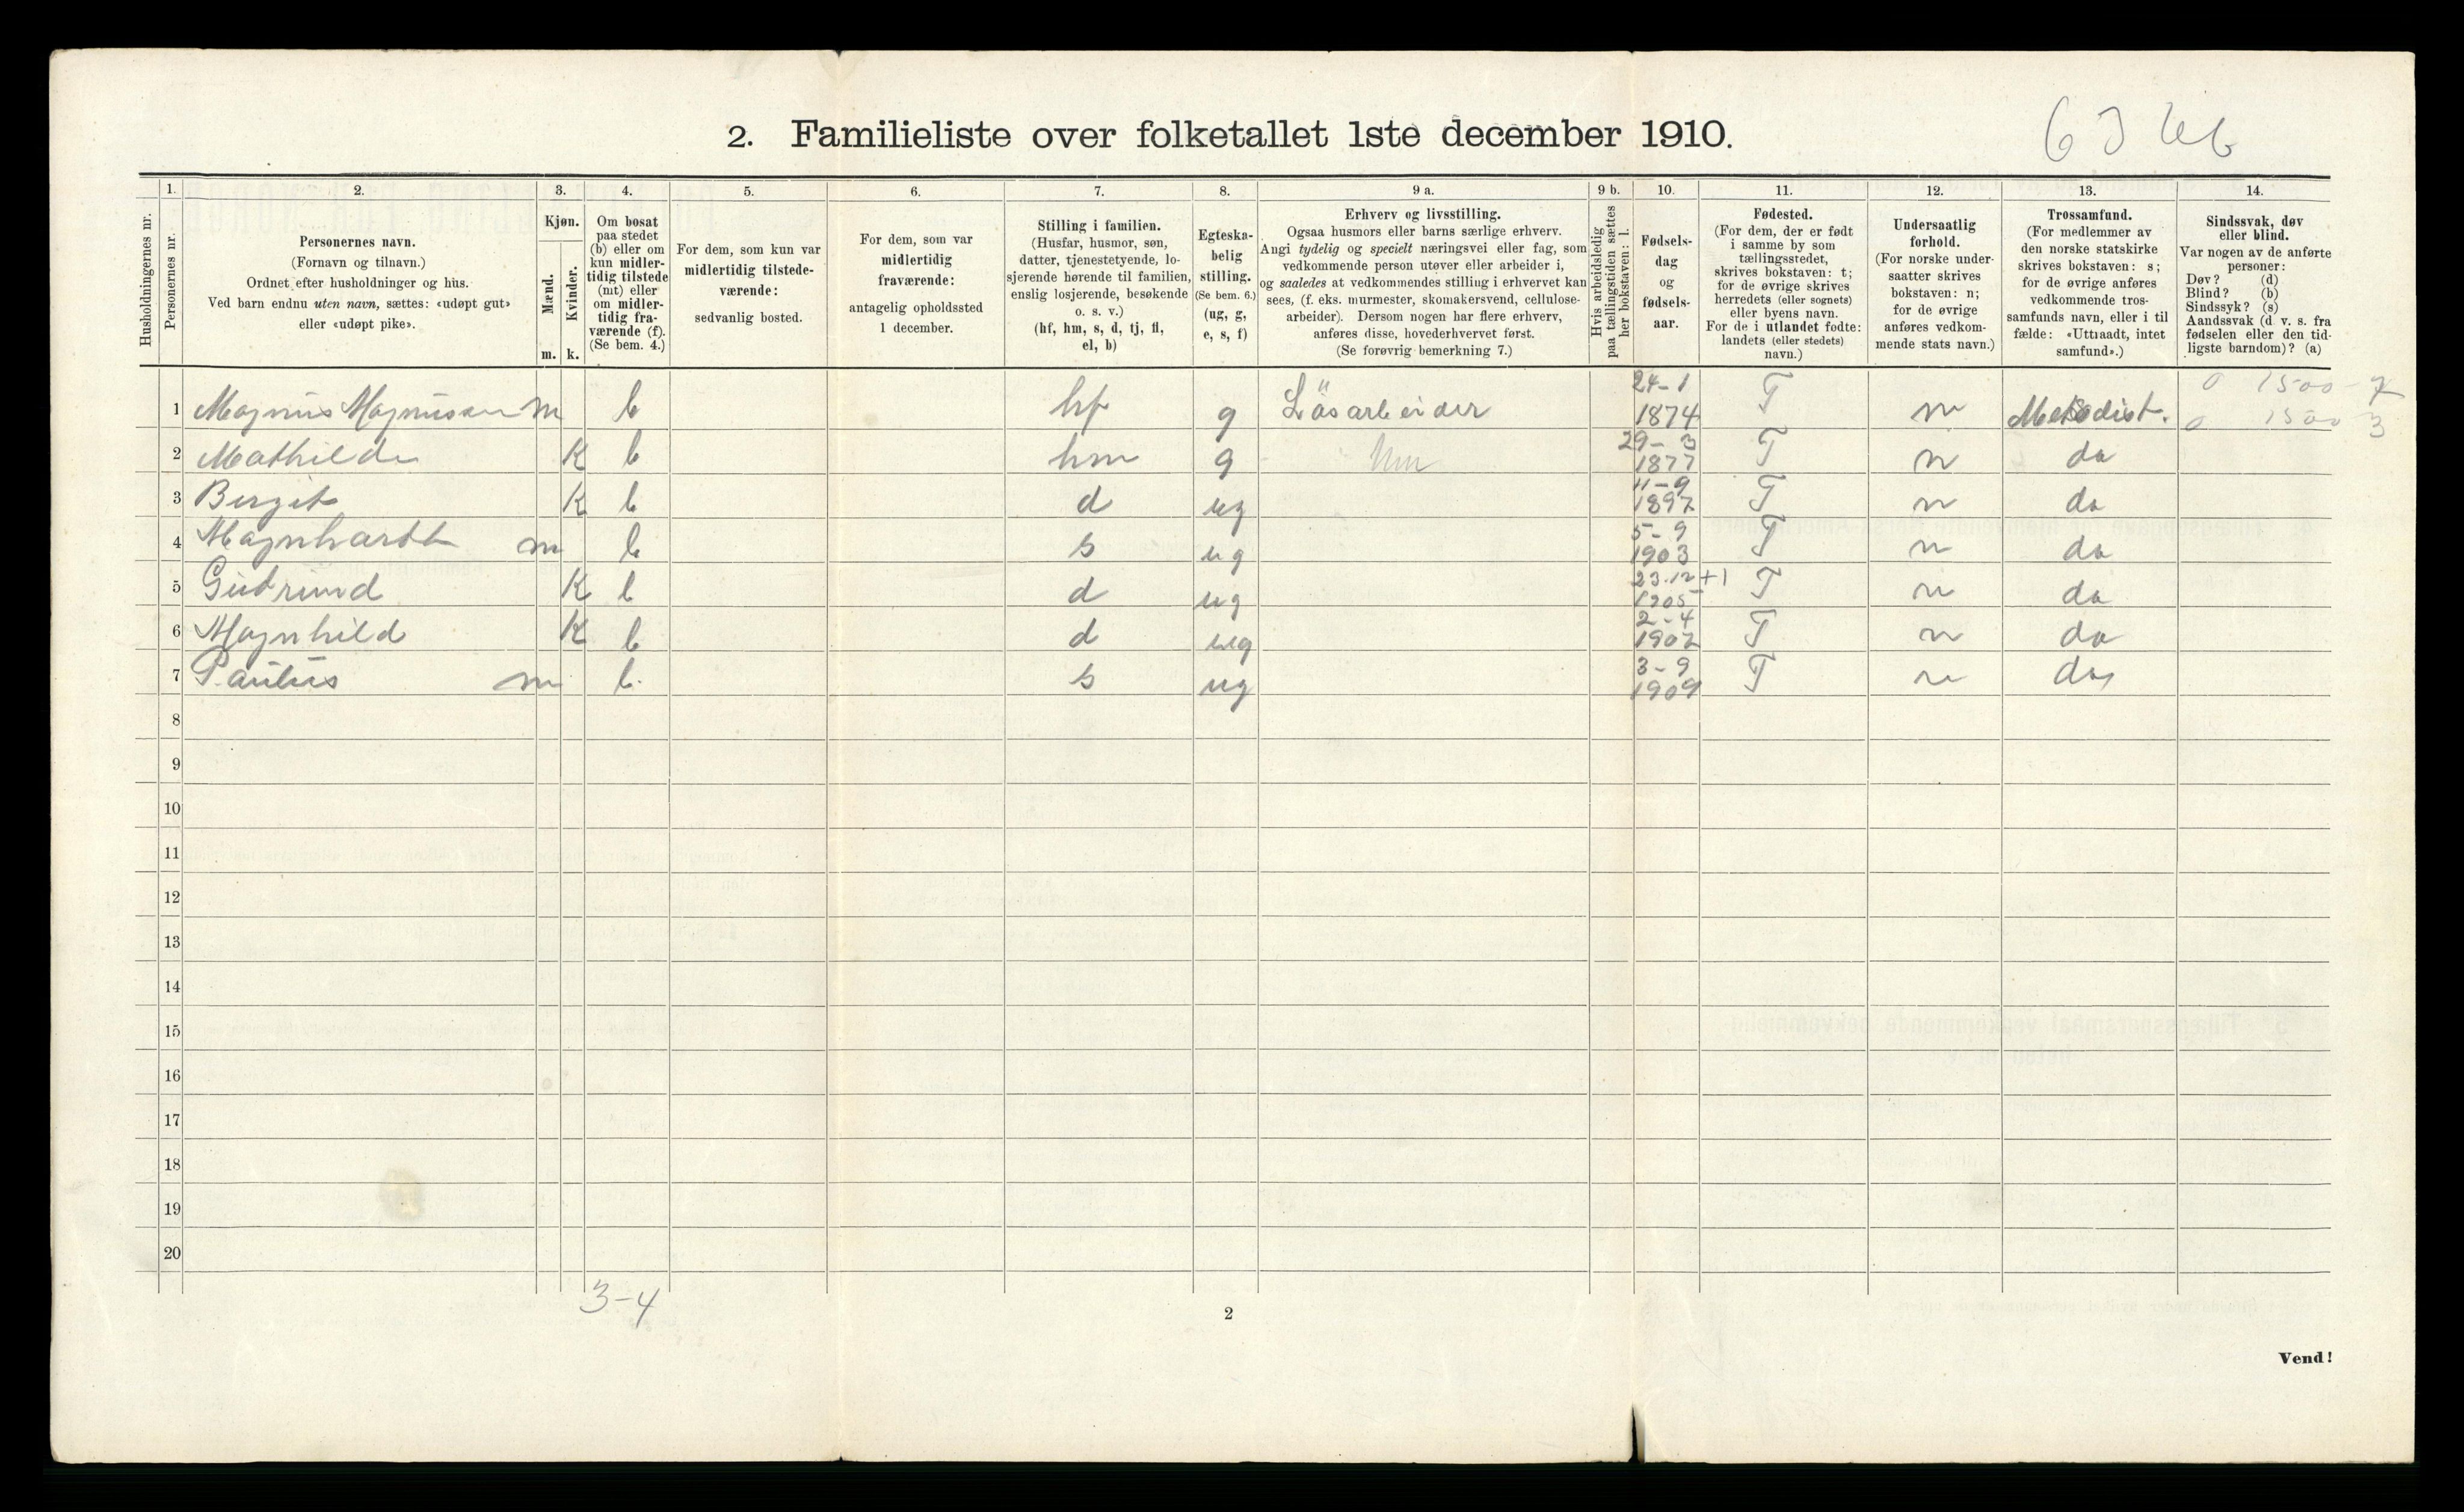 2. Familieliste over folketallet 1ste december 1910.
1. 2. 3. 4. 5. 6. 7. 8. 9 a. 9 b. 10. 11. 12. 13. 14.
Husholdningernes nr.
Personernes nr.
Personernes navn.
(Fornavn og tilnavn.)
Ordnet efter husholdninger og hus.
Ved barn endnu uten navn, sættes: «udøpt gut»
eller «udøpt pike».
Kjøn.
Mænd.
Kvinder.
m. k.
Om bosat
paa stedet
(b) eller om
kun midler-
tidig tilstede
(mt) eller
om midler-
tidig fra-
værende (f).
(Se bem. 4.)
For dem, som kun var
midlertidig tilstede-
værende:
sedvanlig bosted.
For dem, som var
midlertidig
fraværende:
antagelig opholdssted
1 december.
Stilling i familien.
(Husfar, husmor, søn,
datter, tjenestetyende, lo-
sjerende hørende til familien,
enslig losjerende, besøkende
o. s. v.)
(hf, hm, s, d, tj, fl,
el, b)
Egteska-
belig
stilling.
(Se bem. 6.)
(ug, g,
e, s, f)
Erhverv og livsstilling.
Ogsaa husmors eller barns særlige erhverv.
Angi tydelig og specielt næringsvei eller fag, som
vedkommende person utøver eller arbeider i,
og saaledes at vedkommendes stilling i erhvervet kan
sees, (f. eks. murmester, skomakersvend, cellulose-
arbeider). Dersom nogen har flere erhverv,
anføres disse, hovederhvervet først.
(Se forøvrig bemerkning 7.)
Hvis arbeidsledig
paa tællingstiden sættes
her bokstaven: l.
Fødsels-
dag
og
fødsels-
aar.
Fødested.
(For dem, der er født
i samme by som
tællingsstedet,
skrives bokstaven: t;
for de øvrige skrives
herredets (eller sognets)
eller byens navn.
For de i utlandet fødte:
landets (eller stedets)
navn.)
Undersaatlig
forhold.
(For norske under-
saatter skrives
bokstaven: n;
for de øvrige
anføres vedkom-
mende stats navn.)
Trossamfund.
(For medlemmer av
den norske statskirke
skrives bokstaven: s;
for de øvrige anføres
vedkommende tros-
samfunds navn, eller i til
fælde: «Uttraadt, intet
samfund».)
Sindssvak, døv
eller blind.
Var nogen av de anførte
personer:
Døv? (d)
Blind? (b)
Sindssyk? (s)
Aandssvak (d. v. s. fra
fødselen eller den tid-
ligste barndom)? (a)
1 Magnus Magnusen m b hf g Løsarbeider 24-1 1874 T n Metodist. 0 1500
0 1500 3
2 Mathilde K b hm g 29-3 1877 T n do
3 Birgit K b d ug 11-9 1897 T n do
4 Magnhardt m b s ug 5-9 1903 T n do
5 Gudrund K b d ug 23.12 +1 1905 T n do
6 Magnhild K b d ug 2-4 1907 T n do
7 Paulus m b. s ug 3-9 1909 T n do
8
9
10
11
12
13
14
15
16
17
18
19
20
3-4
2
Vend!